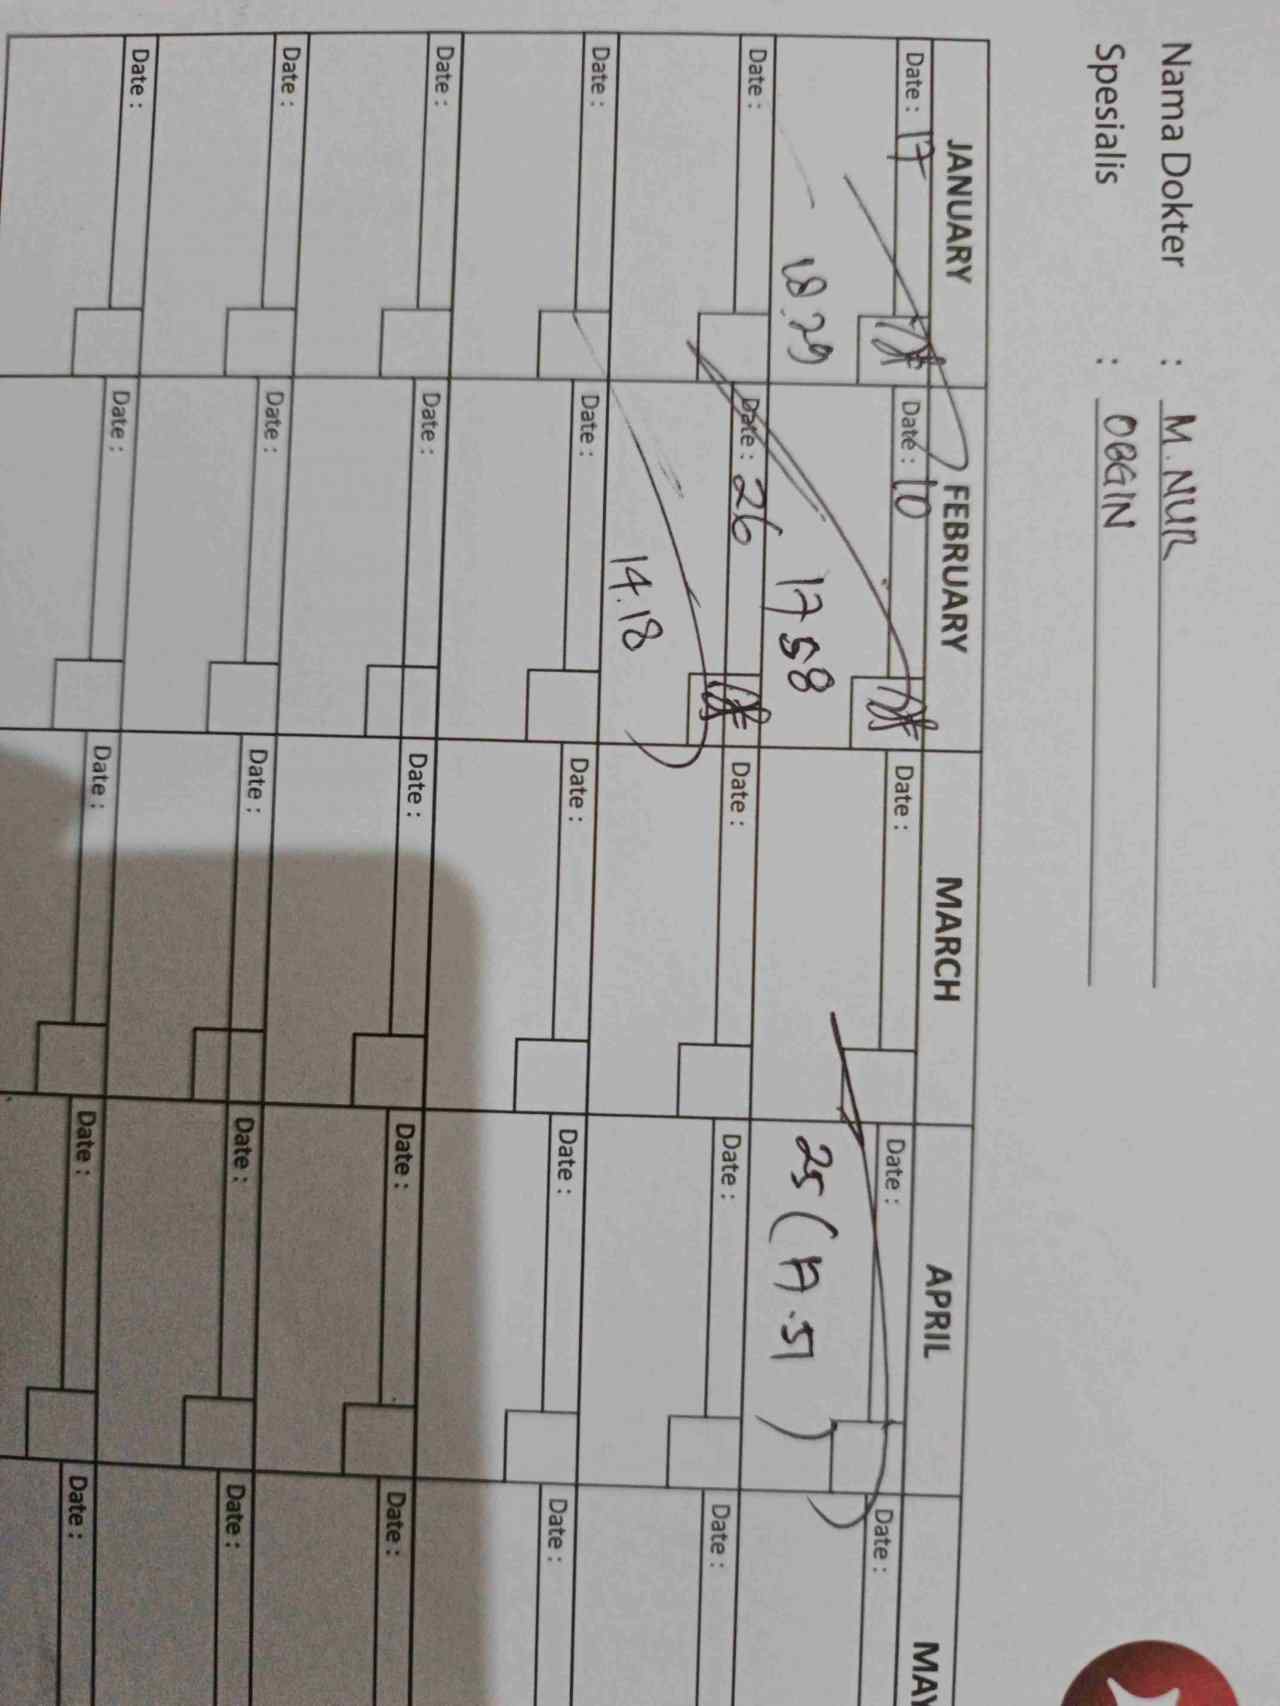 Nama Dokter : M. NUR
Spesialis : OBGIN
JANUARY FEBRUARY MARCH APRIL MAY
Date : 17 Date : 10 Date : Date : Date :
18.29 17 58 25 (17.51)
Date : Date : 26 Date : Date : Date :
14.18
Date : Date : Date : Date : Date :
Date : Date : Date : Date : Date :
Date : Date : Date : Date : Date :
Date : Date : Date : Date : Date :